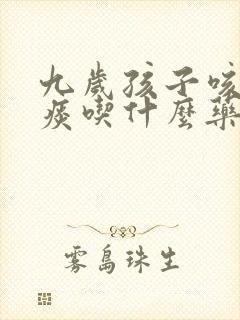 九歲孩子咳
痰喫什麼藥
霧島珠生